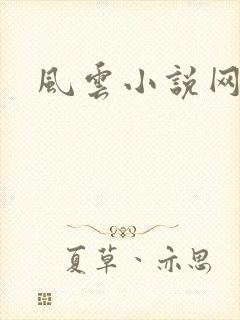 風雲小説网
夏草、亦思